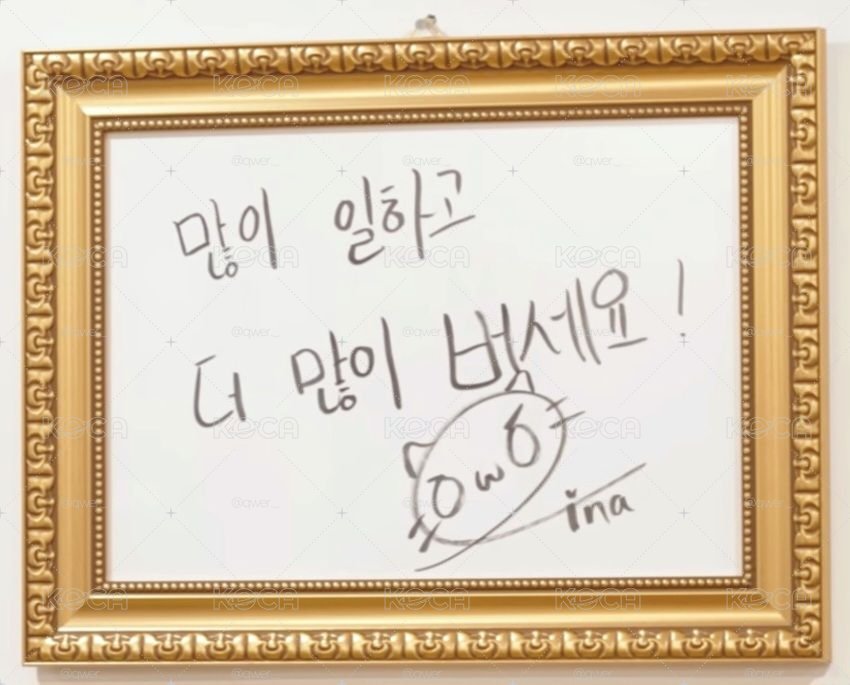 많이 일하고
더 많이 버세요!
ina
KOCA
@qwer_